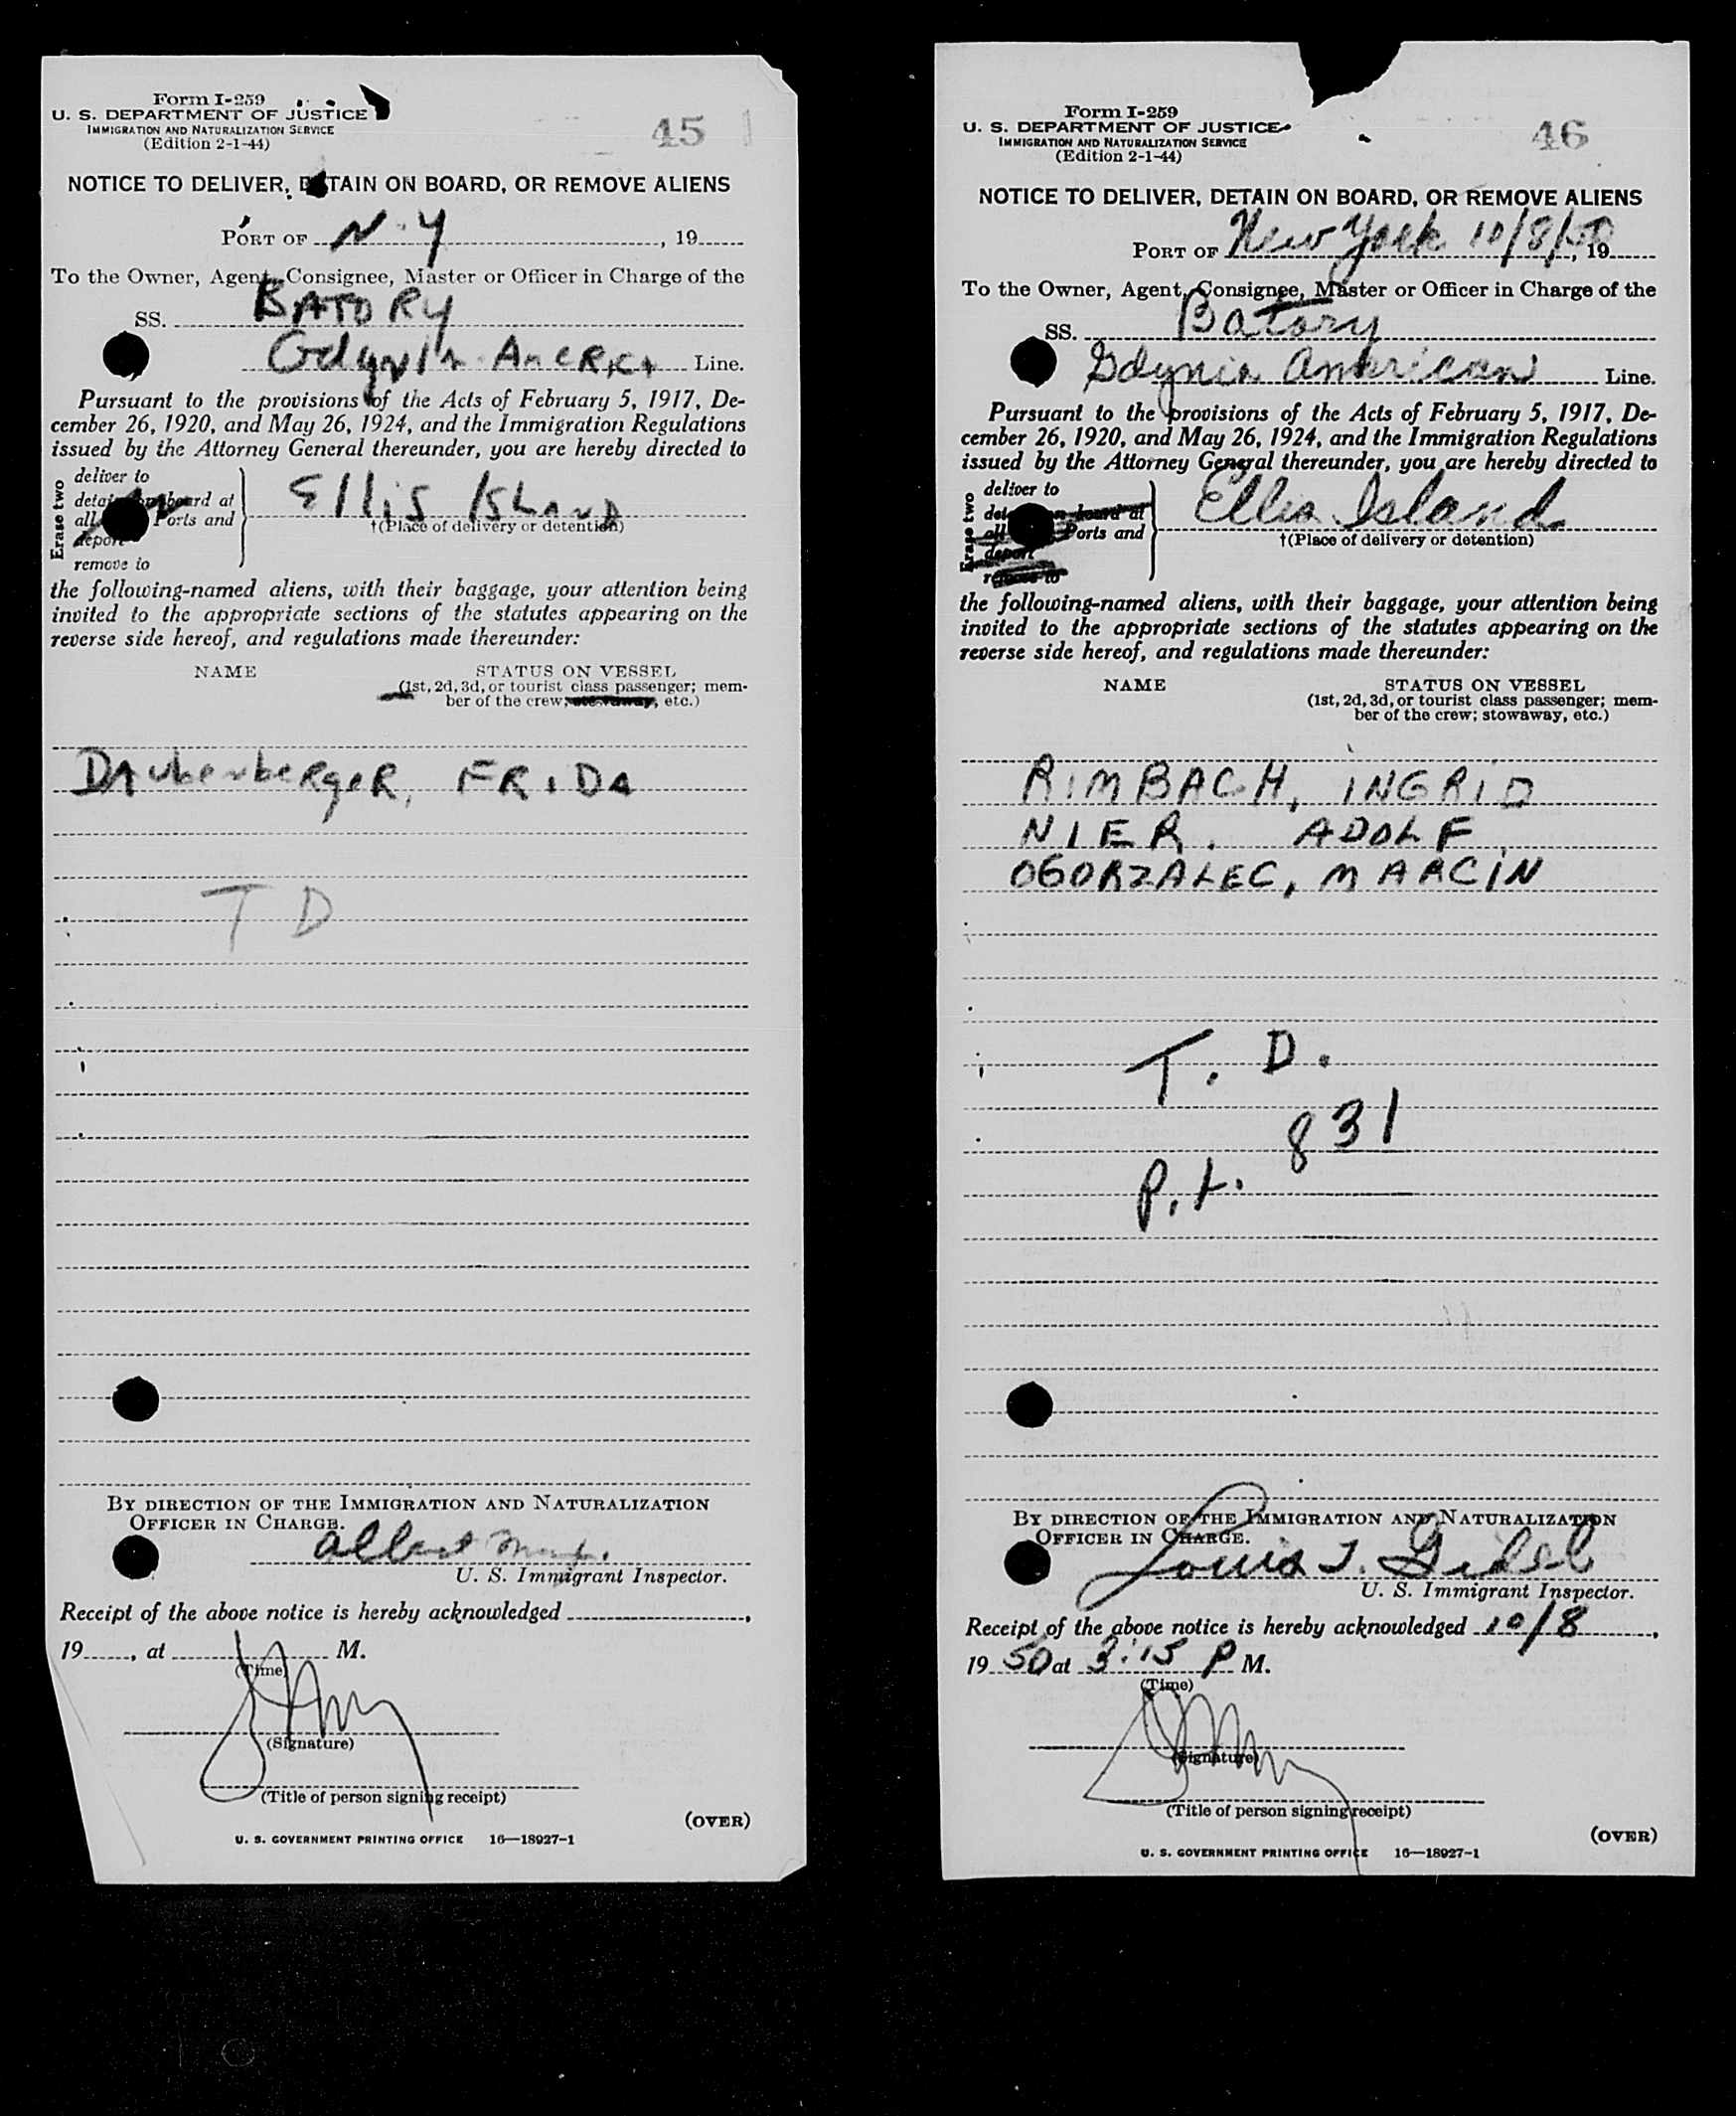 Form I-259
U. S. DEPARTMENT OF JUSTICE
IMMIGRATION AND NATURALIZATION SERVICE
(Edition 2-1-44)
45
NOTICE TO DELIVER, DETAIN ON BOARD, OR REMOVE ALIENS
PORT OF N.Y , 19
To the Owner, Agent, Consignee, Master or Officer in Charge of the
SS. BATORY
Gdynia America Line.
Pursuant to the provisions of the Acts of February 5, 1917, De-
cember 26, 1920, and May 26, 1924, and the Immigration Regulations
issued by the Attorney General thereunder, you are hereby directed to
Erase two
deliver to
detain on board at
all Ports and
deport
remove to
Ellis Island
†(Place of delivery or detention)
the following-named aliens, with their baggage, your attention being
invited to the appropriate sections of the statutes appearing on the
reverse side hereof, and regulations made thereunder:
NAME
STATUS ON VESSEL
(1st, 2d, 3d, or tourist class passenger; mem-
ber of the crew; stowaway, etc.)
DAubenbeRgeR, FRIDA
T D
BY DIRECTION OF THE IMMIGRATION AND NATURALIZATION
OFFICER IN CHARGE.
Albert
U. S. Immigrant Inspector.
Receipt of the above notice is hereby acknowledged ,
19 , at M.
(Time)
(Signature)
(Title of person signing receipt)
(OVER)
U. S. GOVERNMENT PRINTING OFFICE 16—18927-1
Form I-259
U. S. DEPARTMENT OF JUSTICE
IMMIGRATION AND NATURALIZATION SERVICE
(Edition 2-1-44)
46
NOTICE TO DELIVER, DETAIN ON BOARD, OR REMOVE ALIENS
PORT OF New York 10/8/50, 19
To the Owner, Agent, Consignee, Master or Officer in Charge of the
SS. Batory
Gdynia American Line.
Pursuant to the provisions of the Acts of February 5, 1917, De-
cember 26, 1920, and May 26, 1924, and the Immigration Regulations
issued by the Attorney General thereunder, you are hereby directed to
Erase two
deliver to
detain on board at
all Ports and
deport
remove to
Ellis Island
†(Place of delivery or detention)
the following-named aliens, with their baggage, your attention being
invited to the appropriate sections of the statutes appearing on the
reverse side hereof, and regulations made thereunder:
NAME
STATUS ON VESSEL
(1st, 2d, 3d, or tourist class passenger; mem-
ber of the crew; stowaway, etc.)
RIMBACH, INGRID
NIER. ADOLF
OGORZALEC, MARCIN
T. D.
P.L. 831
BY DIRECTION OF THE IMMIGRATION AND NATURALIZATION
OFFICER IN CHARGE.
Louis J.
U. S. Immigrant Inspector.
Receipt of the above notice is hereby acknowledged 10/8,
19 50 at 3:15 P M.
(Time)
(Signature)
(Title of person signing receipt)
(OVER)
U. S. GOVERNMENT PRINTING OFFICE 16—18927-1